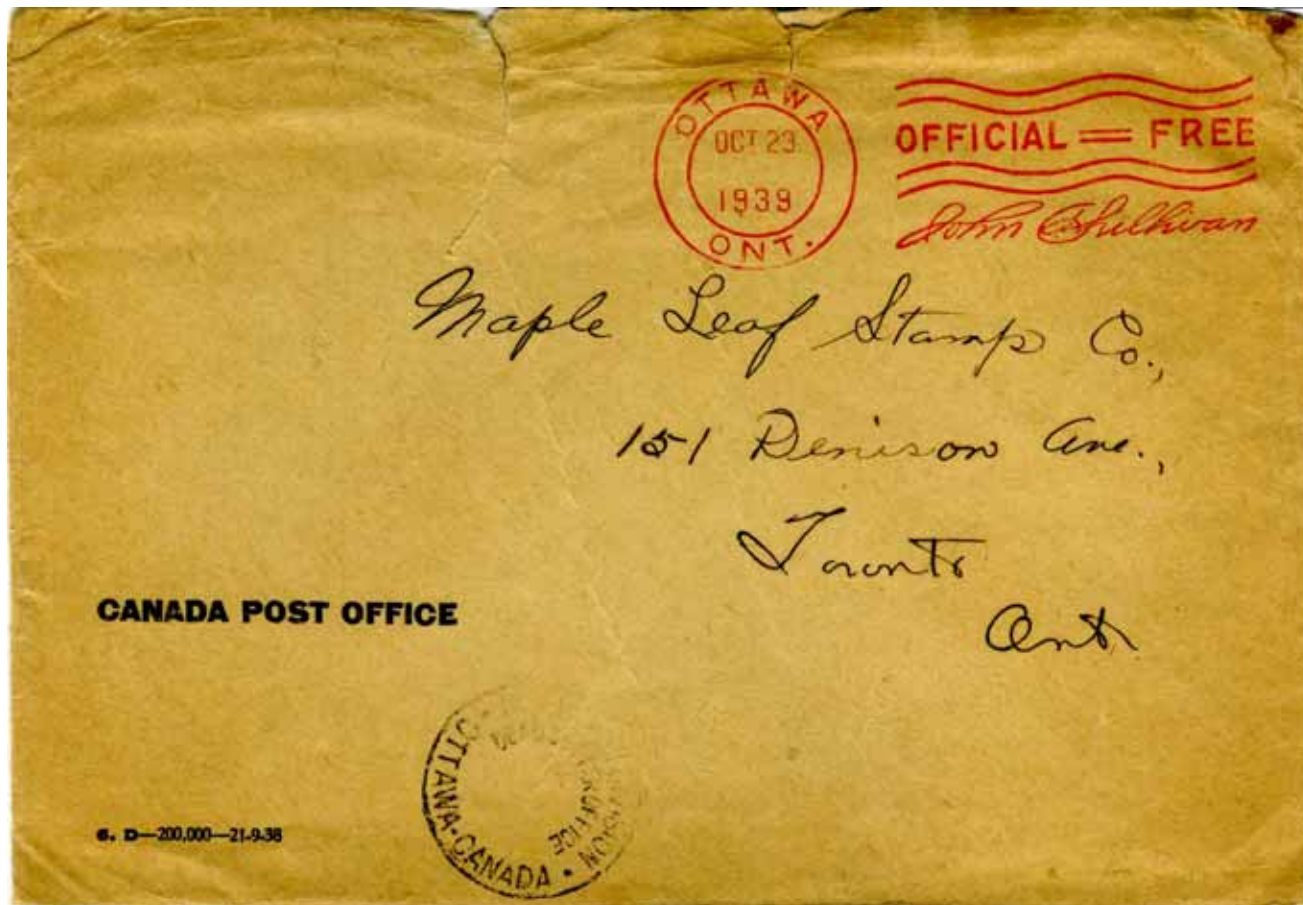 OTTAWA
OCT 23
1939
ONT.
OFFICIAL = FREE
John
Maple Leaf Stamp Co.,
151 Denison Ave.,
Toronto
Ont
CANADA POST OFFICE
OTTAWA·CANADA·
6. D—200,000—21-9-38